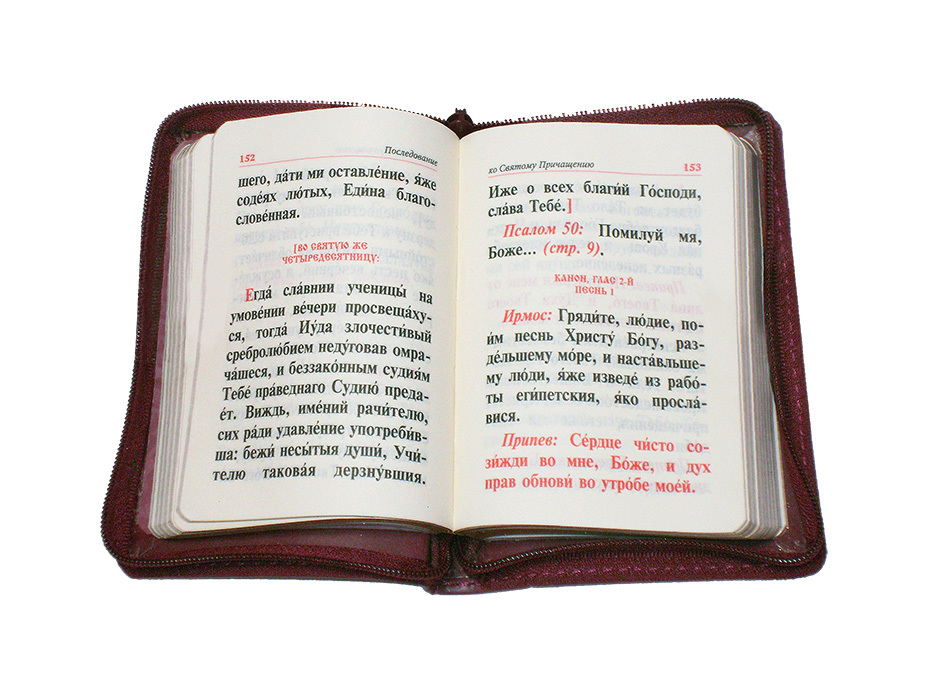 152 Последование
шего, да́ти ми оставле́ние, я́же
соде́ях лю́тых, Еди́на благо-
слове́нная.
[ВО СВЯТУ́Ю ЖЕ
ЧЕТЫРЕДЕСЯ́ТНИЦУ:
Егда́ сла́внии ученицы́ на
умове́нии ве́чери просвеща́ху-
ся, тогда́ Иу́да злочести́вый
сребролю́бием неду́говав омра-
ча́шеся, и беззако́нным судия́м
Тебе́ пра́веднаго Судию́ преда-
е́т. Виждь, име́ний рачи́телю,
сих ра́ди удавле́ние употреби́в-
ша: бежи́ несы́тыя души́, Учи́-
телю такова́я дерзну́вшия.
ко Святому Причащению 153
Иже о всех благи́й Го́споди,
сла́ва Тебе́.]
Псалом 50: Помилуй мя,
Боже... (стр. 9).
КАНОН, ГЛАС 2-Й
ПЕСНЬ 1
Ирмос: Гряди́те, лю́дие, по-
и́м песнь Христу́ Бо́гу, раз-
де́льшему мо́ре, и наста́вльше-
му лю́ди, я́же изведе́ из рабо́-
ты еги́петския, я́ко просла́-
вися.
Припев: Се́рдце чи́сто со-
зи́жди во мне, Бо́же, и дух
прав обнови́ во утро́бе мое́й.